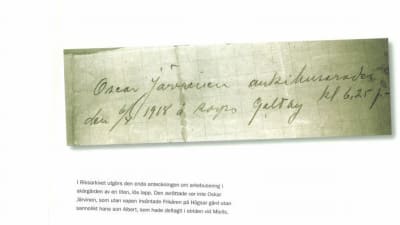 Oscar Järvinen arkibuserades
den 6/5 1918 å Korpo Galtby kl 6,25 f.
I Riksarkivet utgörs den enda anteckningen om arkebusering i
skärgården av en liten, lös lapp. Den avrättade var inte Oskar
Järvinen, som utan vapen inväntade Frikåren på Högsar gård utan
sannolikt hans son Albert, som hade deltagit i striden vid Mielis.